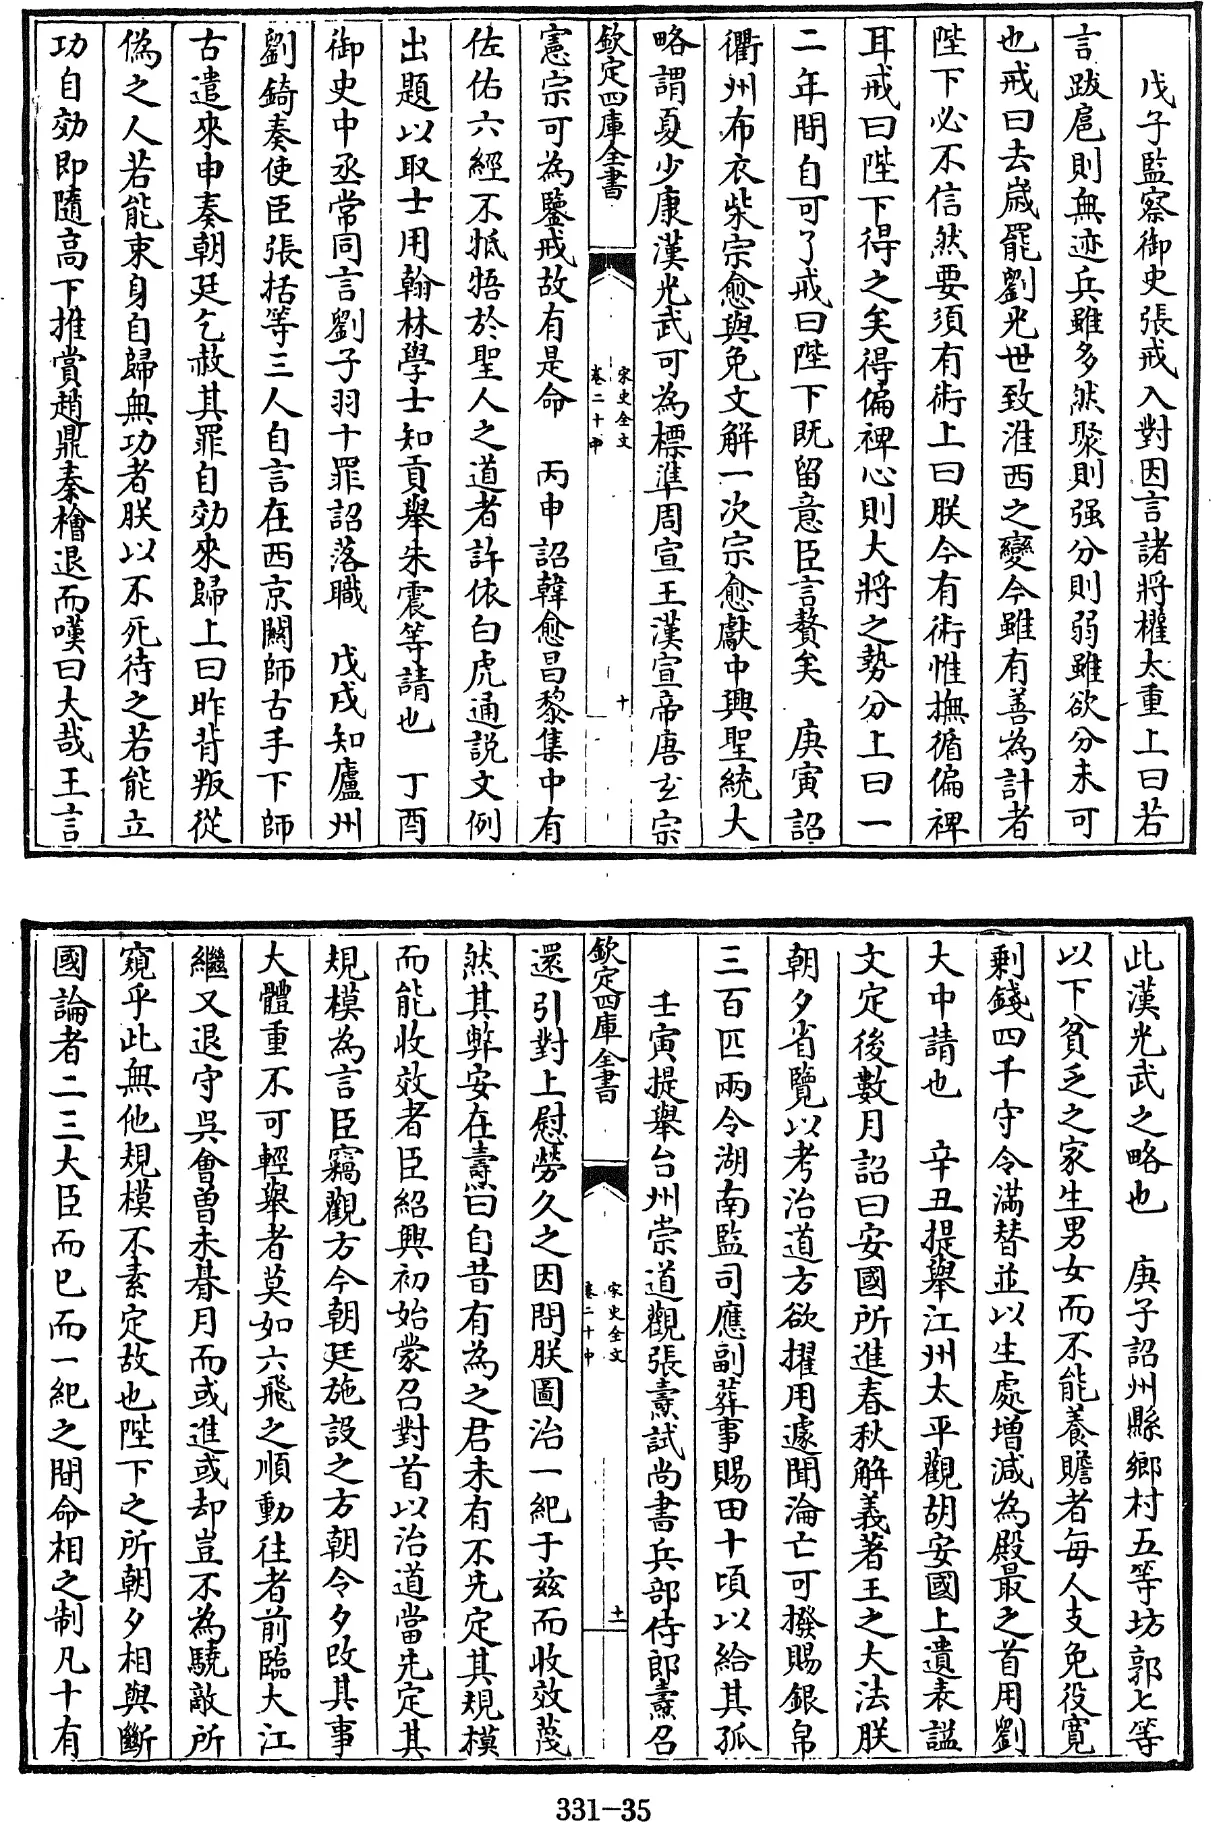 戊子監察御史張戒入對因言諸將權太重上曰若
言跋扈則無迹兵雖多然聚則强分則弱雖欲分未可
也戒曰去嵗罷劉光世致淮西之變今雖有善為計者
陛下必不信然要須有術上曰朕今有術惟撫循偏裨
耳戒曰陛下得之矣得偏裨心則大將之勢分上曰一
二年間自可了戒曰陛下既留意臣言贅矣 庚寅詔
衢州布衣柴宗愈與免文解一次宗愈獻中興聖統大
略謂夏少康漢光武可為標準周宣王漢宣帝唐玄宗
欽定四庫全書
宋史全文
卷二十中
十
憲宗可為鑒戒故有是命 丙申詔韓愈昌黎集中有
佐佑六經不牴牾於聖人之道者許依白虎通説文例
出題以取士用翰林學士知貢舉朱震等請也 丁酉
御史中丞常同言劉子羽十罪詔落職 戊戌知廬州
劉錡奏使臣張括等三人自言在西京闗師古手下師
古遣來申奏朝廷乞赦其罪自効來歸上曰昨背叛從
偽之人若能束身自歸無功者朕以不死待之若能立
功自効即隨高下推賞趙鼎秦檜退而嘆曰大哉王言
此漢光武之略也 庚子詔州縣鄉村五等坊郭七等
以下貧乏之家生男女而不能養贍者每人支免役寛
剩錢四千守令滿替並以生處增減為殿最之首用劉
大中請也 辛丑提舉江州太平觀胡安國上遺表謚
文定後數月詔曰安國所進春秋解義著王之大法朕
朝夕省覽以考治道方欲擢用遽聞淪亡可撥賜銀帛
三百匹兩令湖南監司應副葬事賜田十頃以給其孤
壬寅提舉台州崇道觀張燾試尚書兵部侍郎燾召
欽定四庫全書
宋史全文
卷二十中
十一
還引對上慰勞久之因問朕圖治一紀于兹而收效蔑
然其弊安在燾曰自昔有為之君未有不先定其規模
而能收效者臣紹興初始蒙召對首以治道當先定其
規模為言臣竊觀方今朝廷施設之方朝令夕改其事
大體重不可輕舉者莫如六飛之順動往者前臨大江
繼又退守吳會曾未朞月而或進或却豈不為驍敵所
窺乎此無他規模不素定故也陛下之所朝夕相與斷
國論者二三大臣而已而一紀之間命相之制凡十有
331-35